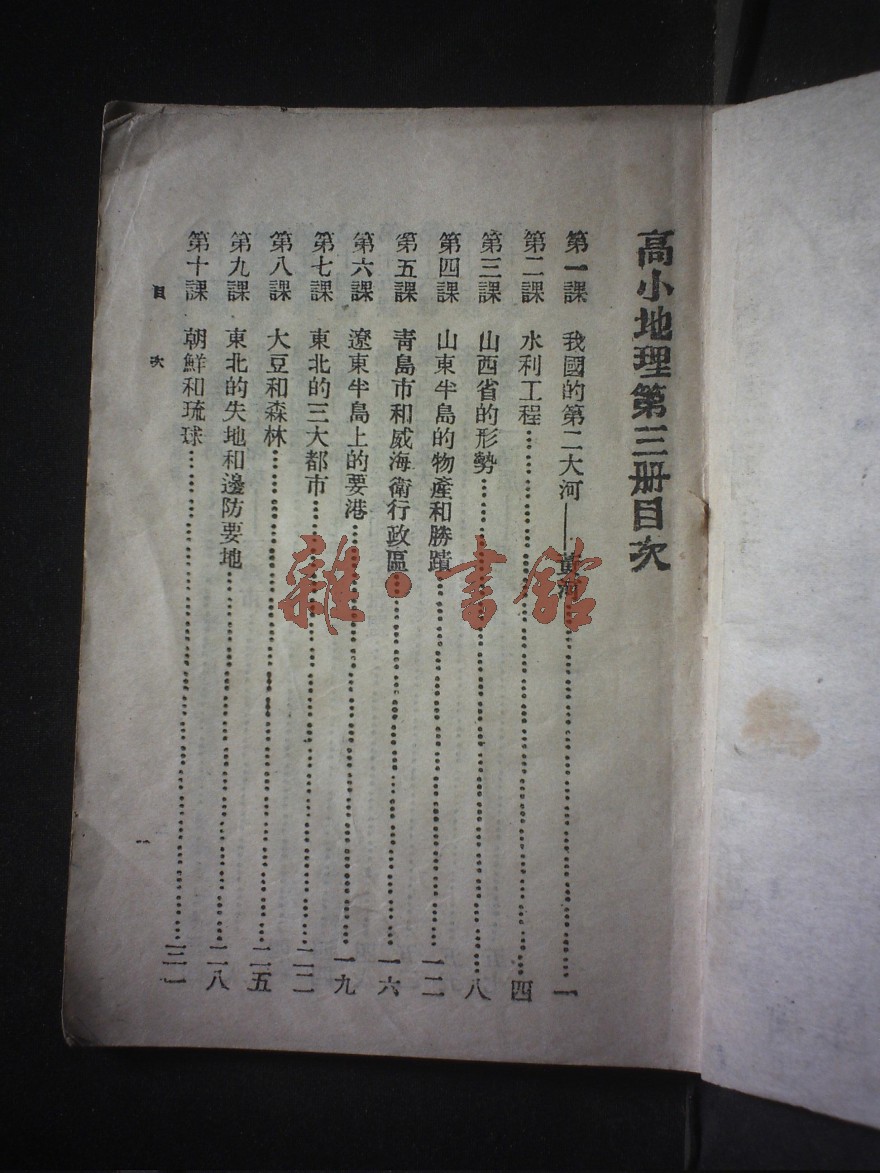 高小地理第三册目次
第一課 我國的第二大河——黃河……一
第二課 水利工程……四
第三課 山西省的形勢……八
第四課 山東半島的物產和勝蹟……一二
第五課 青島市和威海衛行政區……一六
第六課 遼東半島上的要港……一九
第七課 東北的三大都市……二二
第八課 大豆和森林……二五
第九課 東北的失地和邊防要地……二八
第十課 朝鮮和琉球……三一
目次
一
雜·書館